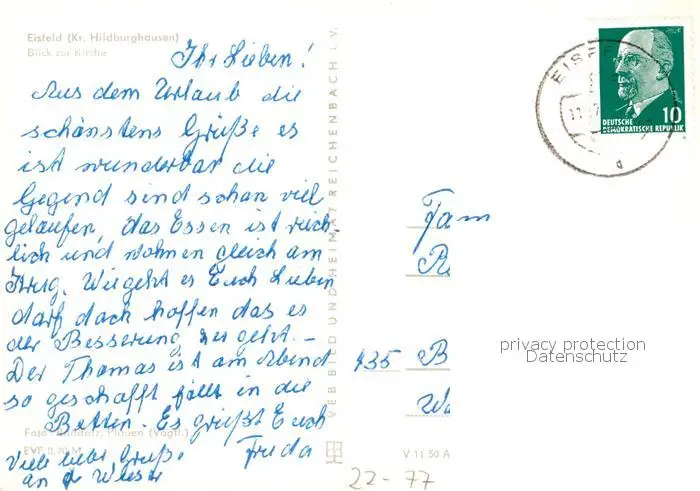 Eisfeld (Kr. Hildburghausen)
Blick zur Kirche
Ihr Lieben!
Aus dem Urlaub die
schönstens Grüße es
ist wunderbar die
Gegend sind schon viel
gelaufen, das Essen ist reich
lich und wohnen gleich am
Wie geht es Euch Lieben
darf doch hoffen das es
der Besserung zu geht. —
Der Thomas ist am Abend
so geschafft fällt in die
Betten. Es grüßt Euch
Frieda
Viele liebe Grüße
an
Foto Plauen (Vogtl.)
V 11 50 A
VEB BILD UND HEIMAT REICHENBACH I. V.
EISF
DEUTSCHE
DEMOKRATISCHE REPUBLIK
10
Fam
435 B
privacy protection
Datenschutz
22-77